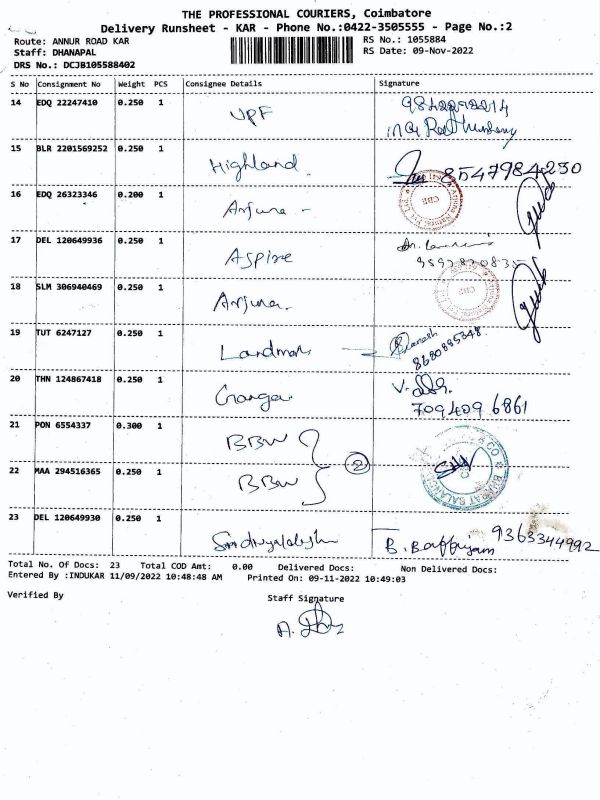 THE PROFESSIONAL COURIERS, Coimbatore
Delivery Runsheet - KAR - Phone No.:0422-3505555 - Page No.:2
Route: ANNUR ROAD KAR
RS No.: 1055884
Staff: DHANAPAL
RS Date: 09-Nov-2022
DRS No.: DCJB105588402
S No Consignment No Weight PCS Consignee Details Signature
14 EDQ 22247410 0.250 1 VPF
15 BLR 2201569252 0.250 1 Highland. 8547984230
16 EDQ 26323346 0.200 1 Arjuna -
17 DEL 120649936 0.250 1 Aspire
18 SLM 306940469 0.250 1 Arjuna.
19 TUT 6247127 0.250 1 Landmark 8680895348
20 THN 124867418 0.250 1 Ganga V.
709409 6861
21 PON 6554337 0.300 1 BBW
2
22 MAA 294516365 0.250 1 BBW
23 DEL 120649930 0.250 1 B. 9363344992
Total No. Of Docs: 23 Total COD Amt: 0.00 Delivered Docs: Non Delivered Docs:
Entered By :INDUKAR 11/09/2022 10:48:48 AM Printed On: 09-11-2022 10:49:03
Verified By Staff Signature